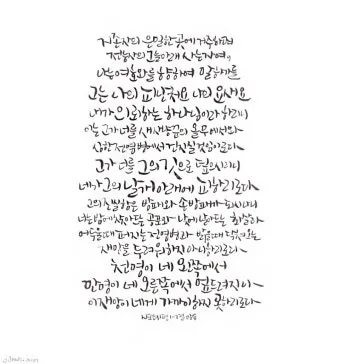 지존자의 은밀한 곳에 거주하며
전능자의 그늘 아래 사는 자여,
나는 여호와를 향하여 말하기를
그는 나의 피난처요 나의 요새요
내가 의뢰하는 하나님이라 하리니
이는 그가 너를 새 사냥꾼의 올무에서와
심한 전염병에서 건지실 것임이로다
그가 너를 그의 깃으로 덮으시리니
네가 그의 날개 아래에 피하리로다
그의 진실함은 방패와 손 방패가 되시나니
너는 밤에 찾아오는 공포와 낮에 날아드는 화살과
어두울 때 퍼지는 전염병과 밝을 때 닥쳐오는
재앙을 두려워하지 아니하리로다
천명이 네 왼쪽에서
만명이 네 오른쪽에서 엎드러지나
이 재앙이 네게 가까이 하지 못하리로다